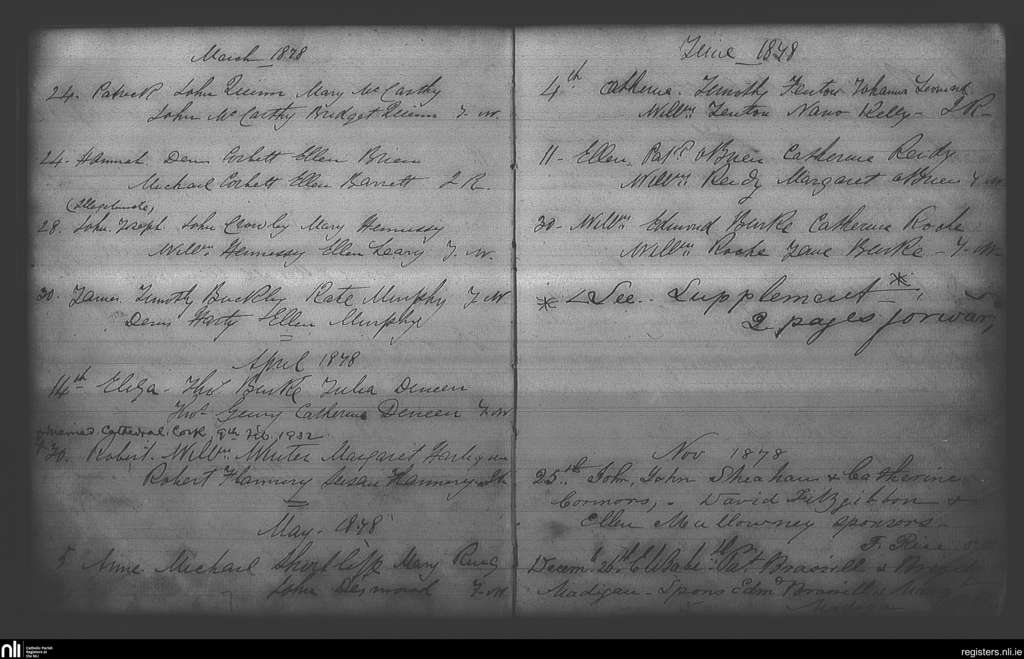 March 1878
24. Patrick John Quinn Mary McCarthy
John McCarthy Bridget Quinn T. W.
24. Hannah Denis Corbett Ellen Brien
Michael Corbett Ellen Barrett J R.
(Illegitimate)
28. John Joseph John Crowley Mary Hennessy
Willm Hennessy Ellen Leary T. W.
30. James Timothy Buckley Kate Murphy T W
Denis Harty Ellen Murphy
April 1878
14th Eliza - Thos Burke Julia Dineen
Thos Geary Catherine Dineen T. W
married Cathedral Cork, 9th Feb 1932
30. Robert. Willm Winter Margaret
Robert Flannery Susan Flannery
May - 1878
5 Anne Michael Mary Ring
John Desmond T. W
June 1878
4th Catherine. Timothy Fenton Johanna
Willm Fenton Nano Kelly - J R-
11- Ellen, Patk OBrien Catherine Reidy
Willm Reidy Margaret OBrien T W
30- Willm Edmund Burke Catherine Roche
Willm Roche Jane Burke - T. W-
* See.. Supplement *
2 pages forward
Nov 1878
25.th John, John Sheahan & Catherine
Connors, - David Fitzgibbon &
Ellen Mullowney sponsors -
T. Rice
Decemr 26th Pat Brasvill & Bridget
Madigan - Spons Edmd Brasvill & Mary
Madigan
nli
Catholic Parish
Registers at
the NLI
registers.nli.ie